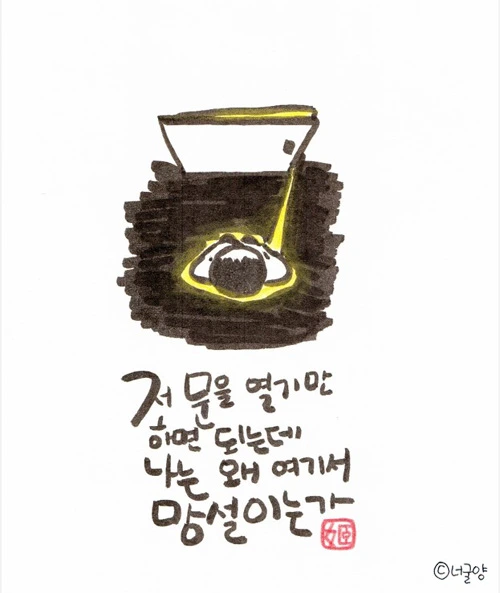 저 문을 열기만
하면 되는데
나는 왜 여기서
망설이는가
姬
©너굴양